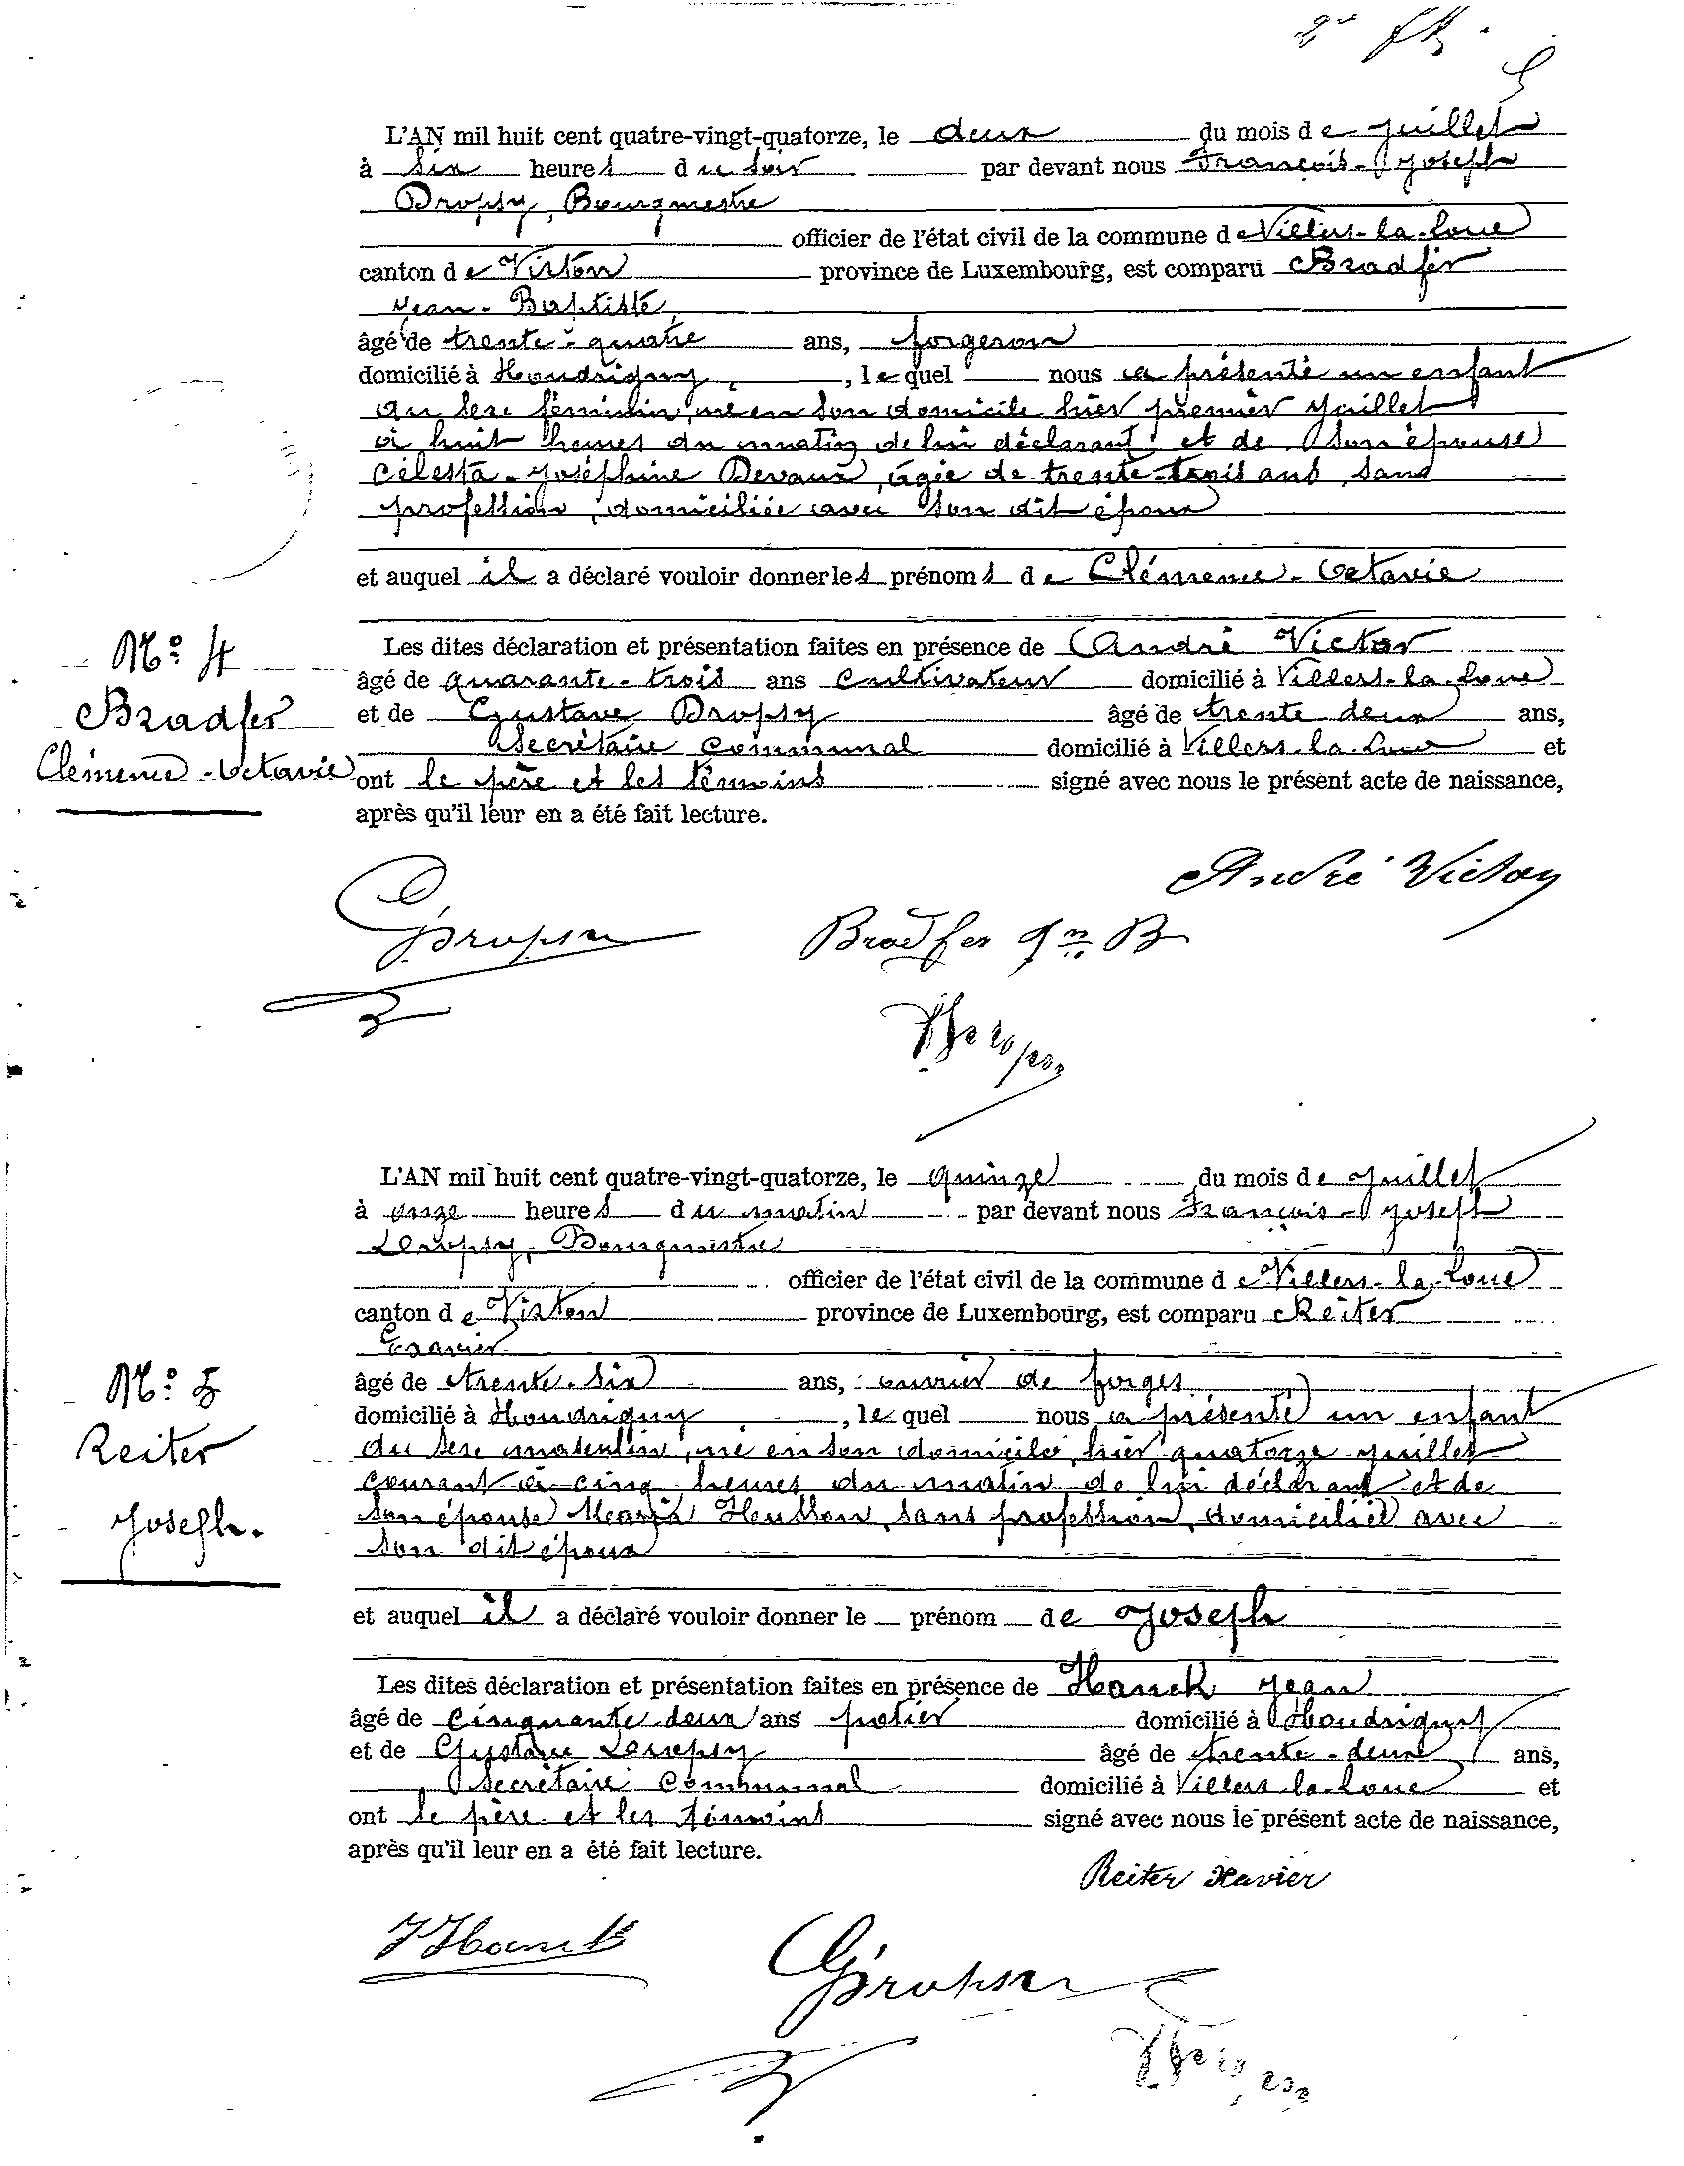 2e
L'AN mil huit cent quatre-vingt-quatorze, le deux du mois de juillet
à six heures du soir par devant nous François-Joseph
Dropsy, Bourgmestre
officier de l'état civil de la commune de Villers-la-Loue
canton de Virton province de Luxembourg, est comparu Bradfer
Jean-Baptiste,
âgé de trente-quatre ans, forgeron
domicilié à Houdrigny, lequel nous a présenté un enfant
du sexe féminin, né en son domicile hier premier juillet
à huit heures du matin de lui déclarant et de son épouse
Célesta-Joséphine Devaux, âgée de trente-trois ans, sans
profession, domiciliée avec son dit époux
et auquel il a déclaré vouloir donner les prénoms de Clémence-Octavie
Les dites déclaration et présentation faites en présence de André Victor
âgé de quarante-trois ans cultivateur domicilié à Villers-la-Loue
et de Gustave Dropsy âgé de trente deux ans,
Secrétaire communal domicilié à Villers-la-Loue et
ont le père et les témoins signé avec nous le présent acte de naissance,
après qu'il leur en a été fait lecture.
No: 4
Bradfer
Clémence-Octavie
André Victor
G Dropsy
Bradfer Jn B
L'AN mil huit cent quatre-vingt-quatorze, le quinze du mois de juillet
à onze heures du matin par devant nous François-Joseph
Dropsy, Bourgmestre
officier de l'état civil de la commune de Villers-la-Loue
canton de Virton province de Luxembourg, est comparu Reiter
Exavier
âgé de trente-six ans, ouvrier de forges
domicilié à Houdrigny, lequel nous a présenté un enfant
du sexe masculin, né en son domicile, hier quatorze juillet
courant à cinq heures du matin de lui déclarant et de
son épouse Maria Husson, sans profession, domiciliée avec
son dit époux
et auquel il a déclaré vouloir donner le prénom de Joseph
Les dites déclaration et présentation faites en présence de Hanck Jean
âgé de cinquante deux ans potier domicilié à Houdrigny
et de Gustave Dropsy âgé de trente-deux ans,
Secrétaire communal domicilié à Villers-la-Loue et
ont le père et les témoins signé avec nous le présent acte de naissance,
après qu'il leur en a été fait lecture.
No: 5
Reiter
Joseph.
Reiter Xavier
J Hanck
G Dropsy